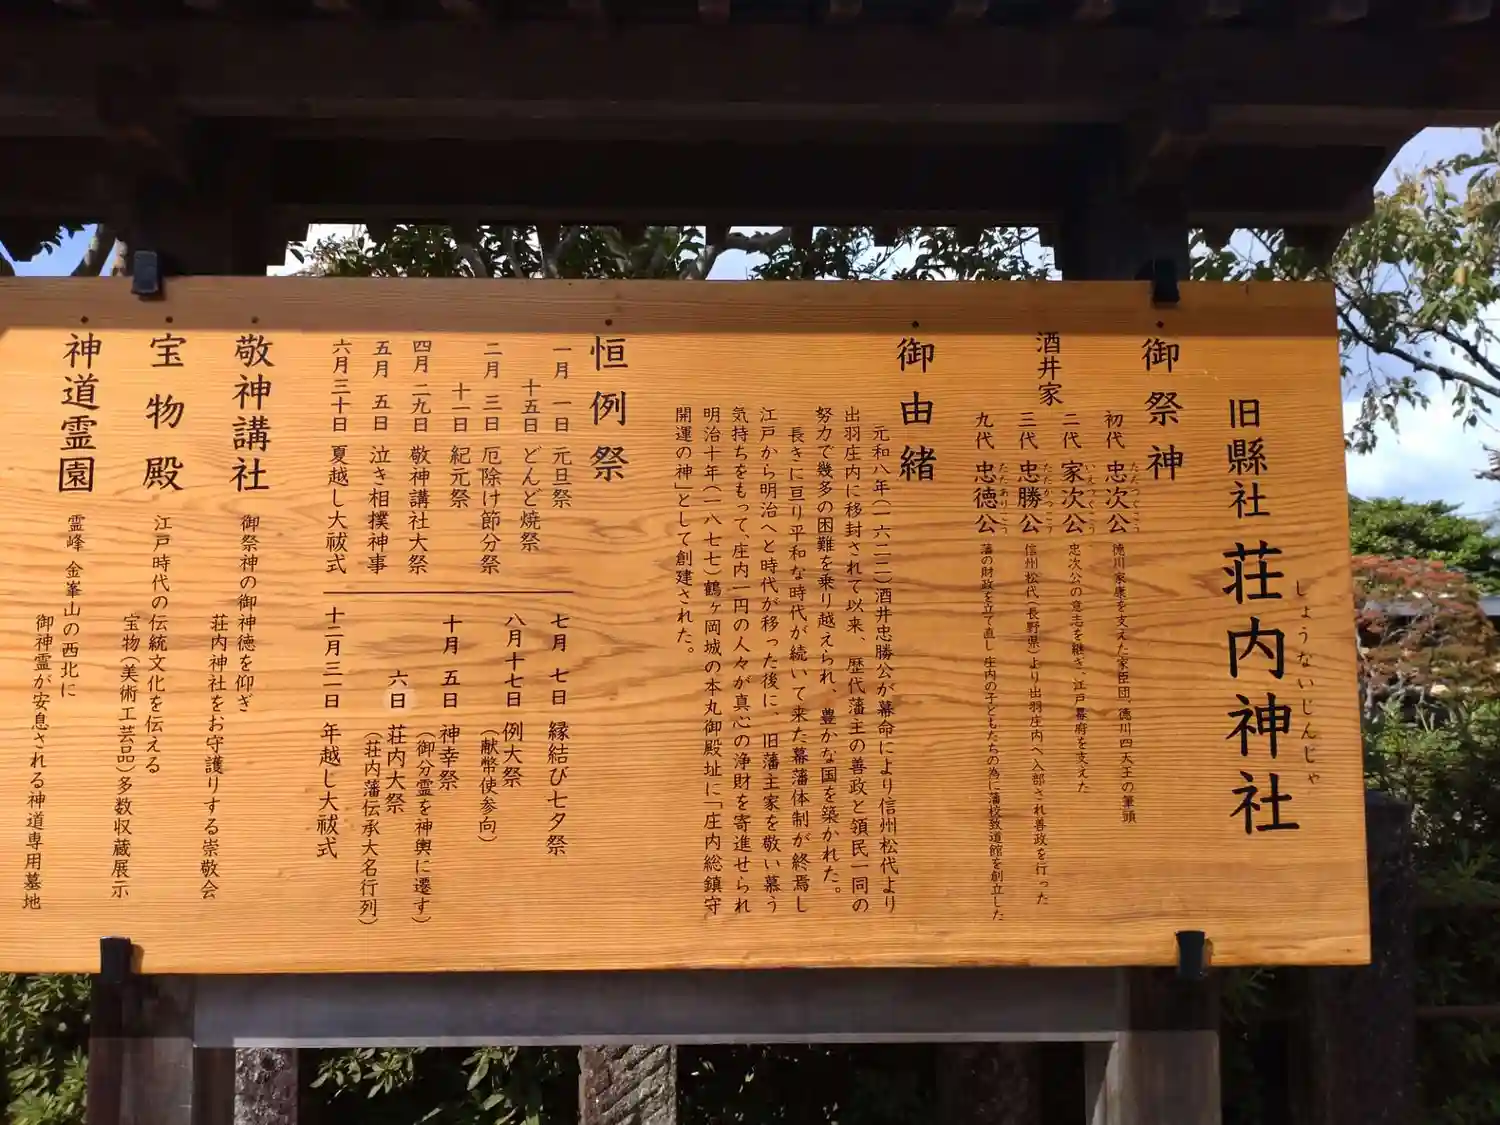 旧縣社 荘内神社
しょうないじんじゃ
・御祭神
酒井家
初代 忠次公 徳川家康を支えた家臣団、徳川四天王の筆頭
ただつぐこう
二代 家次公 忠次公の意志を継ぎ、江戸幕府を支えた
いえつぐこう
三代 忠勝公 信州松代(長野県)より出羽庄内へ入部され善政を行った
ただかつこう
九代 忠徳公 藩の財政を立て直し 庄内の子どもたちの為に藩校致道館を創立した
ただありこう
・御由緒
元和八年(一六二二)酒井忠勝公が幕命により信州松代より
出羽庄内に移封されて以来、歴代藩主の善政と領民一同の
努力で幾多の困難を乗り越えられ、豊かな国を築かれた。
長きに亘り平和な時代が続いて来た幕藩体制が終焉し
江戸から明治へと時代が移った後に、旧藩主家を敬い慕う
気持ちをもって、庄内一円の人々が真心の浄財を寄進せられ
明治十年(一八七七)鶴ヶ岡城の本丸御殿址に「庄内総鎮守
開運の神」として創建された。
・恒例祭
一月 一日 元旦祭
十五日 どんど焼祭
二月 三日 厄除け節分祭
十一日 紀元祭
四月 二九日 敬神講社大祭
五月 五日 泣き相撲神事
六月三十日 夏越し大祓式
七月 七日 縁結び七夕祭
八月十七日 例大祭
(献幣使参向)
十月 五日 神幸祭
(御分霊を神輿に遷す)
六日 荘内大祭
(荘内藩伝承大名行列)
十二月三一日 年越し大祓式
・敬神講社 御祭神の御神徳を仰ぎ
荘内神社をお守護りする崇敬会
・宝物殿 江戸時代の伝統文化を伝える
宝物(美術工芸品)多数収蔵展示
・神道霊園 霊峰 金峯山の西北に
御神霊が安息される神道専用墓地